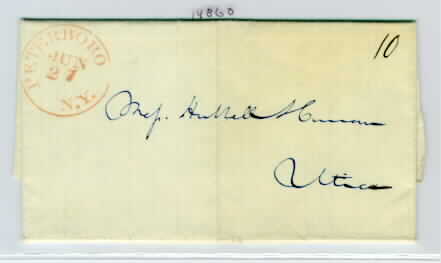 14860
PETERBORO
JUN
27
N.Y.
10
Mess. Hubbell & Curran
Utica